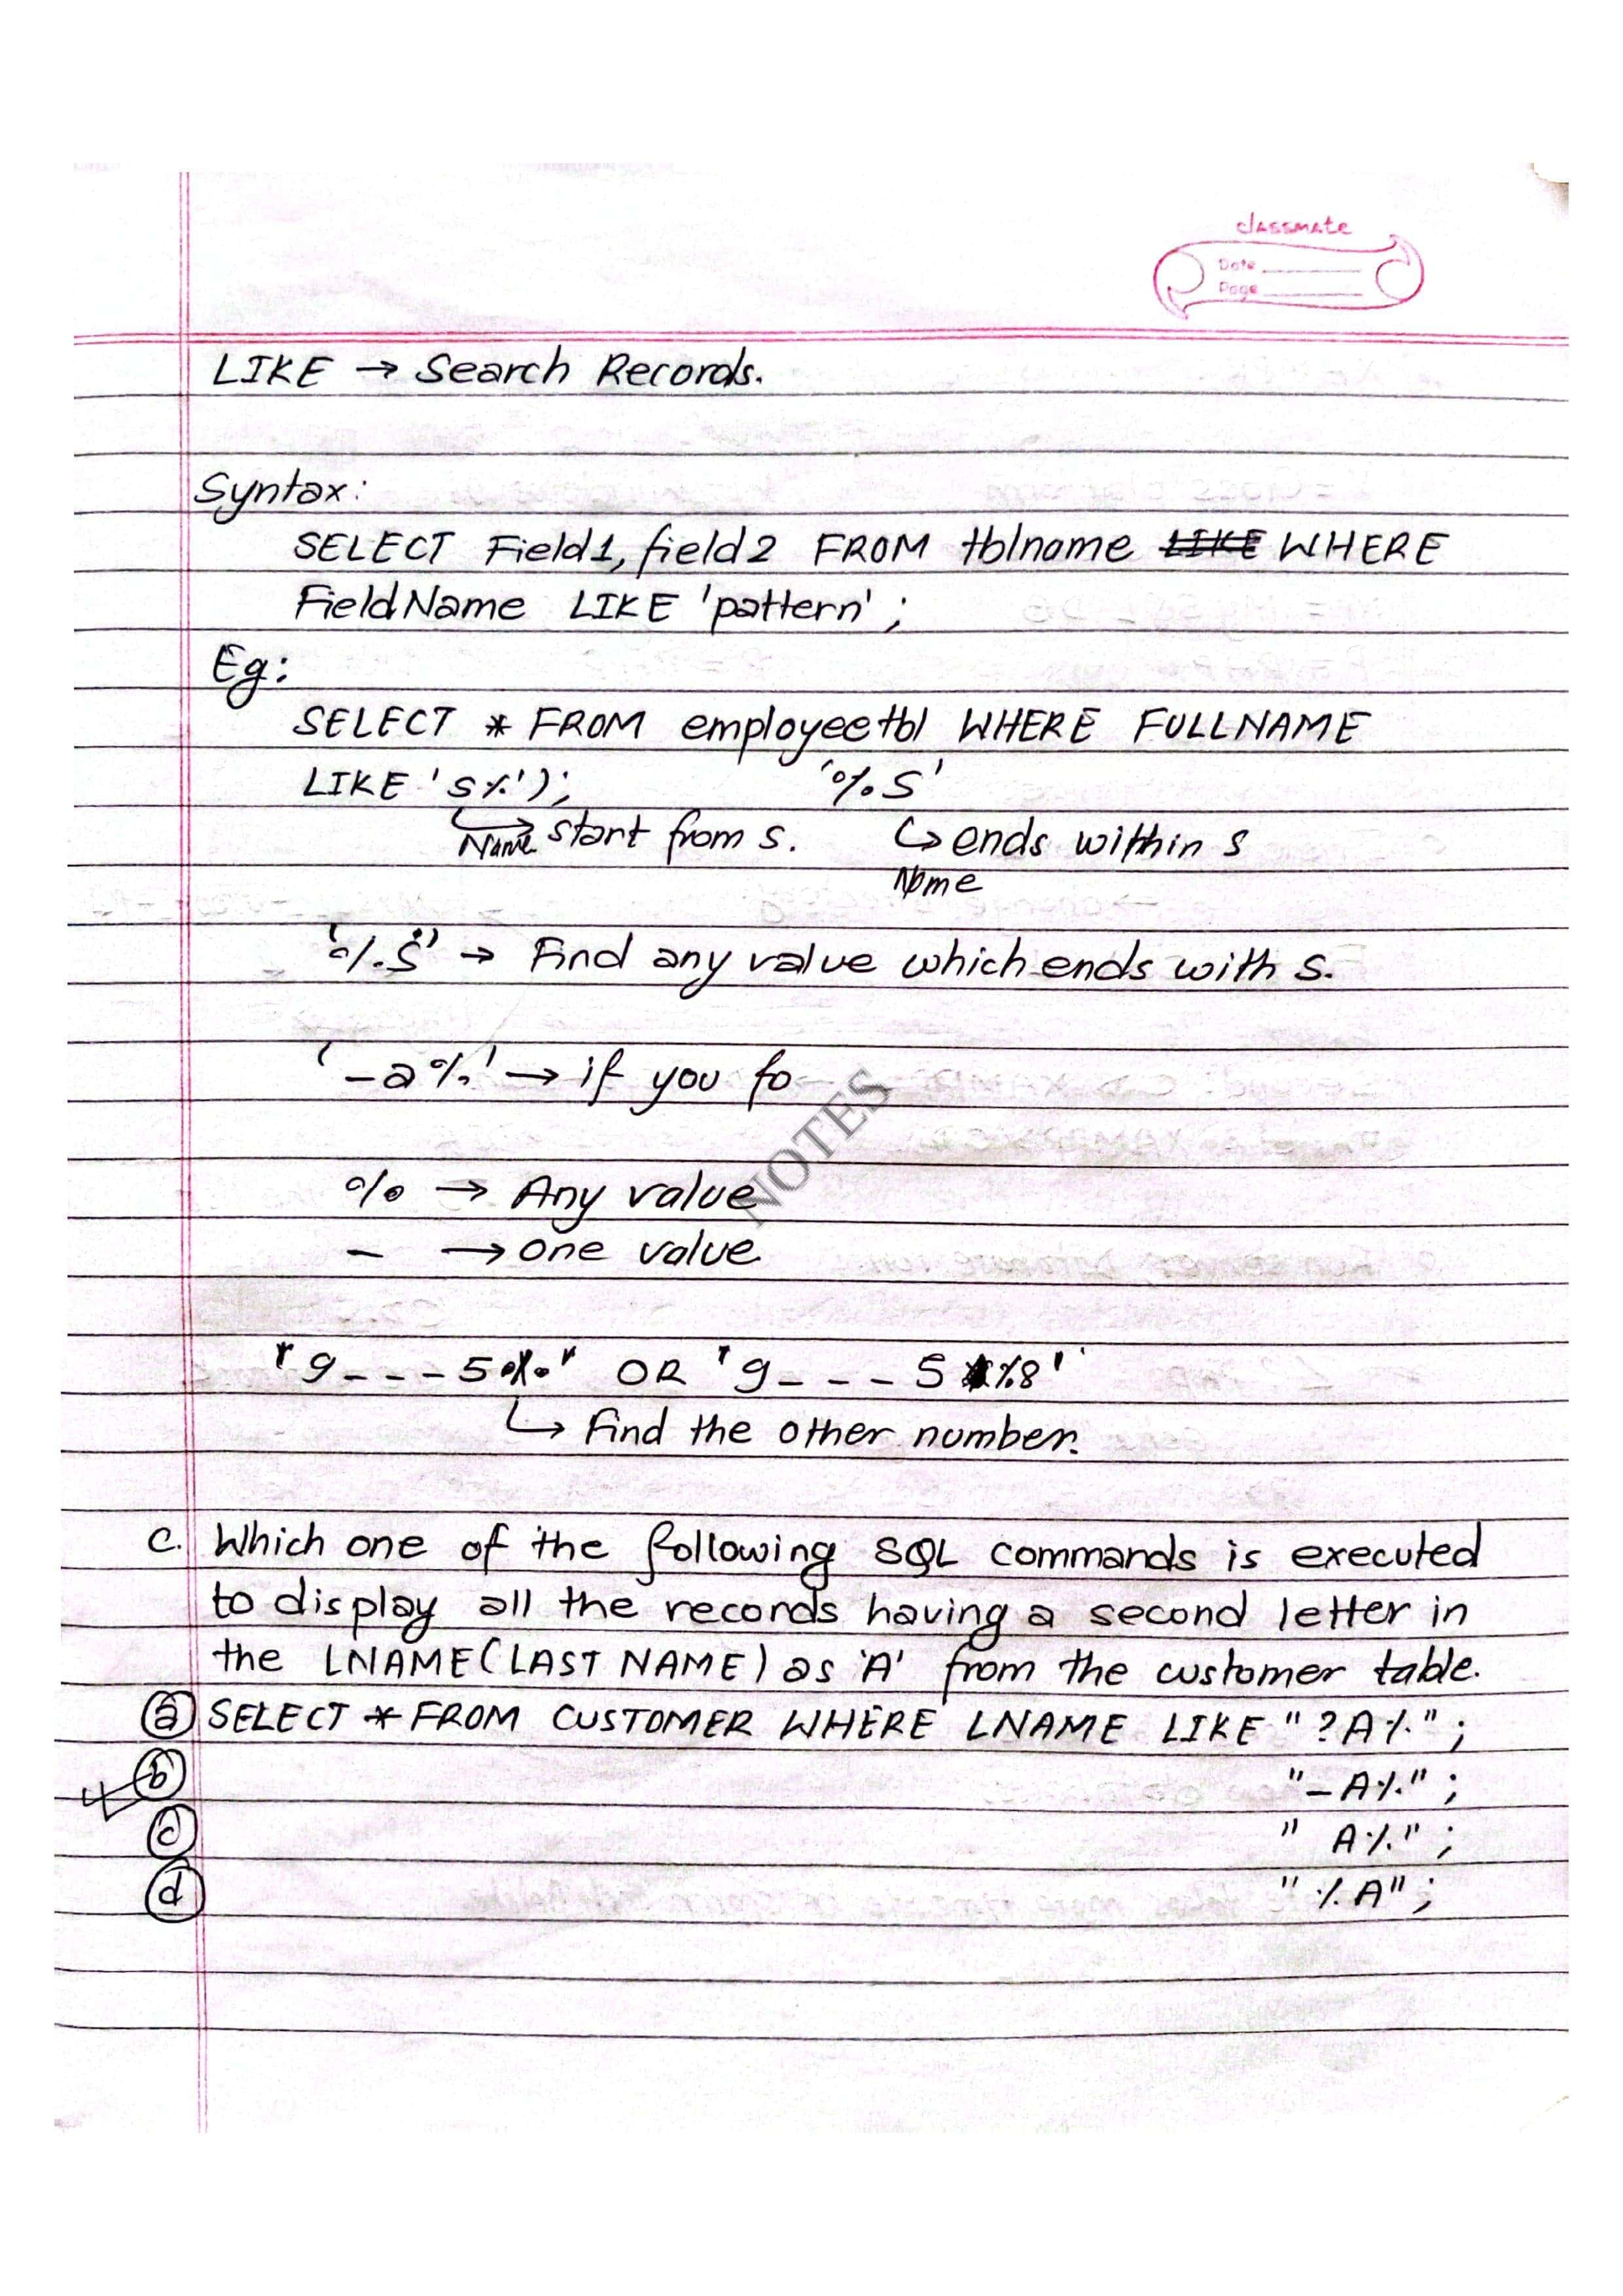 classmate
Date
Page
LIKE → Search Records.
Syntax:
SELECT Field1, field2 FROM tblname LIKE WHERE
FieldName LIKE 'pattern';
Eg:
SELECT * FROM employeetbl WHERE FULLNAME
LIKE 'S%'); '%S'
Name start from s. ↪ ends within s
Name
'%S' → Find any value which ends with s.
'_a%' → if you fo
NOTES
% → Any value
_ → one value
'9___5%' OR '9___5%8'
↪ Find the other number.
c. Which one of the following SQL commands is executed
to display all the records having a second letter in
the LNAME(LAST NAME) as 'A' from the customer table.
ⓐ SELECT * FROM CUSTOMER WHERE LNAME LIKE "?A%";
ⓑ "_A%";
ⓒ " A%";
ⓓ "%A";